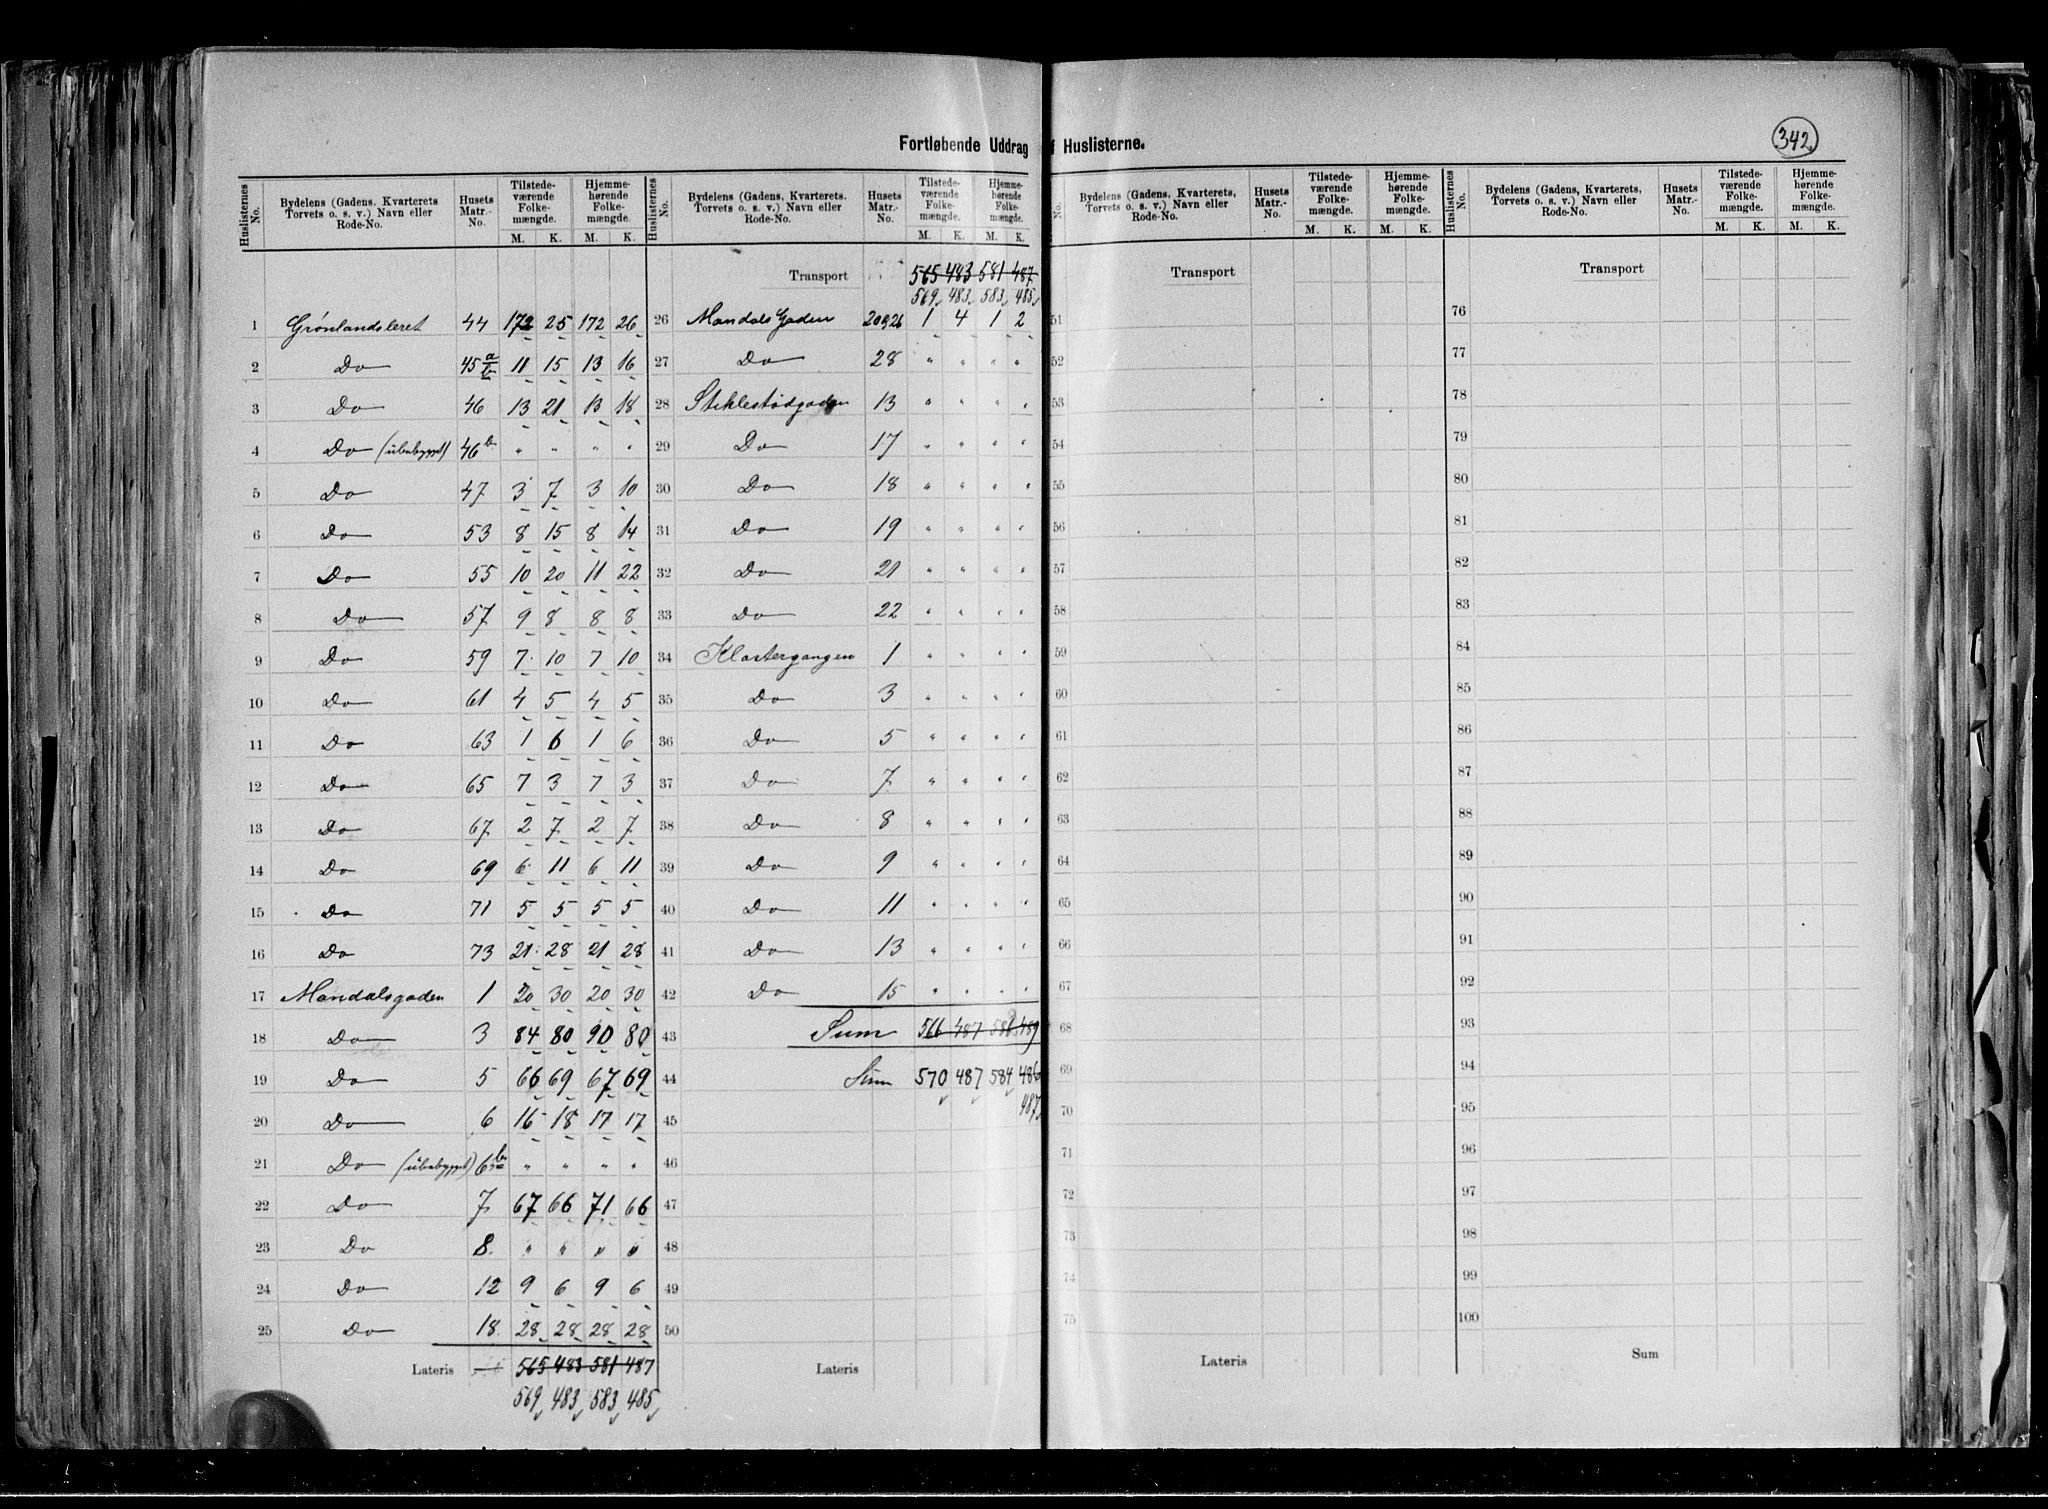 342
Fortløbende Uddrag f Huslisterne.
Huslisternes No. Bydelens (Gadens, Kvarterets, Torvets o. s. v.) Navn eller Rode-No. Husets Matr.-No. Tilstede-værende Folke-mængde. M. K. Hjemme-hørende Folke-mængde. M. K.
1 Grønlandsleret 44 172 25 172 26
2 Do 45 a/b 11 15 13 16
3 Do 46 13 21 13 18
4 Do (ubebygget) 46 b " " " "
5 Do 47 3 7 3 10
6 Do 53 8 15 8 14
7 Do 55 10 20 11 22
8 Do 57 9 8 8 8
9 Do 59 7 10 7 10
10 Do 61 4 5 4 5
11 Do 63 1 6 1 6
12 Do 65 7 3 7 3
13 Do 67 2 7 2 7
14 Do 69 6 11 6 11
15 Do 71 5 5 5 5
16 Do 73 21 28 21 28
17 Mandalsgaden 1 20 30 20 30
18 Do 3 84 80 90 80
19 Do 5 66 69 67 69
20 Do 6 16 18 17 17
21 Do (ubebygget) 6 b " " " "
22 Do 7 67 66 71 66
23 Do 8. " " " "
24 Do 12 9 6 9 6
25 Do 18 28 28 28 28
Lateris 565 483 581 487
569 483 583 485
Huslisternes No. Bydelens (Gadens, Kvarterets. Torvets o. s. v.) Navn eller Rode-No. Husets Matr.-No. Tilstede-værende Folke-mængde. M. K. Hjemme-hørende Folke-mængde. M. K.
Transport 565 483 581 487
569 483 583 485
26 Mandals Gaden 20 26 1 4 1 2
27 Do 28 " " " "
28 Stiklestadgaden 13 " " " "
29 Do 17 " " " "
30 Do 18 " " " "
31 Do 19 " " " "
32 Do 21 " " " "
33 Do 22 " " " "
34 Klostergangen 1 " " " "
35 Do 3 " " " "
36 Do 5 " " " "
37 Do 7 " " " "
38 Do 8 " " " "
39 Do 9 " " " "
40 Do 11 " " " "
41 Do 13 " " " "
42 Do 15 " " " "
43 Sum 566 487 489
44 Sum 570 487 584 486
487
45
46
47
48
49
50
Lateris
No. Bydelens (Gadens, Kvarterets, Torvets o. s. v.) Navn eller Rode-No. Husets Matr.-No. Tilstede-værende Folke-mængde. M. K. Hjemme-hørende Folke-mængde. M. K.
Transport
51
52
53
54
55
56
57
58
59
60
61
62
63
64
65
66
67
68
69
70
71
72
73
74
75
Lateris
Huslisternes No. Bydelens (Gadens, Kvarterets, Torvets o. s. v.) Navn eller Rode-No. Husets Matr.-No. Tilstede-værende Folke-mængde. M. K. Hjemme-hørende Folke-mængde. M. K.
Transport
76
77
78
79
80
81
82
83
84
85
86
87
88
89
90
91
92
93
94
95
96
97
98
99
100
Sum